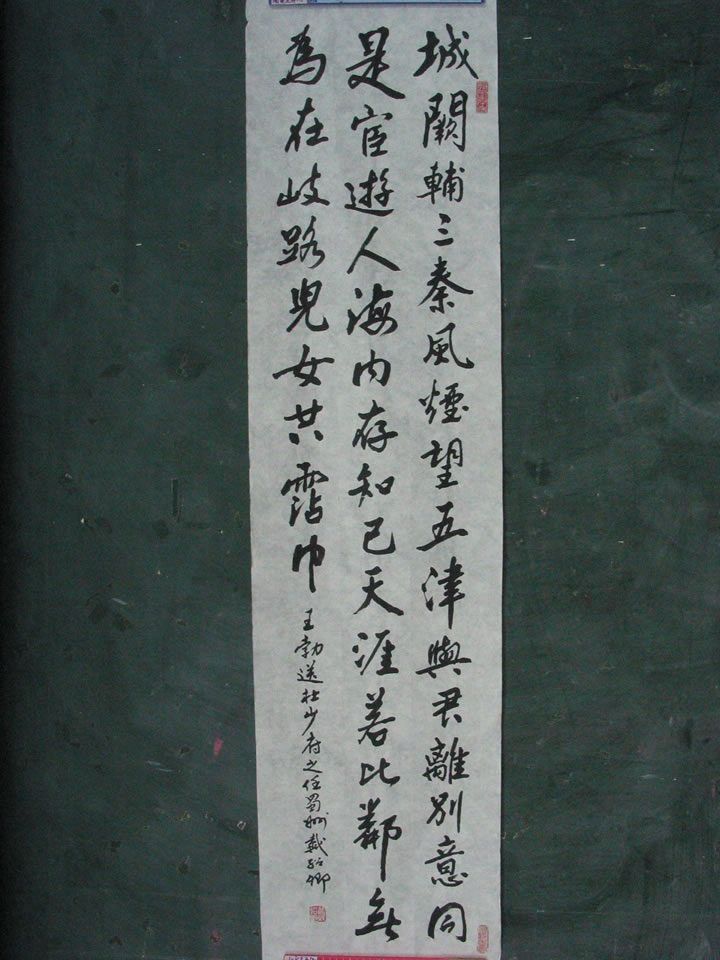 城闕輔三秦風煙望五津與君離別意同
是宦遊人海内存知己天涯若比鄰無
為在岐路兒女共霑巾
王勃送杜少府之任蜀州戴紹卿